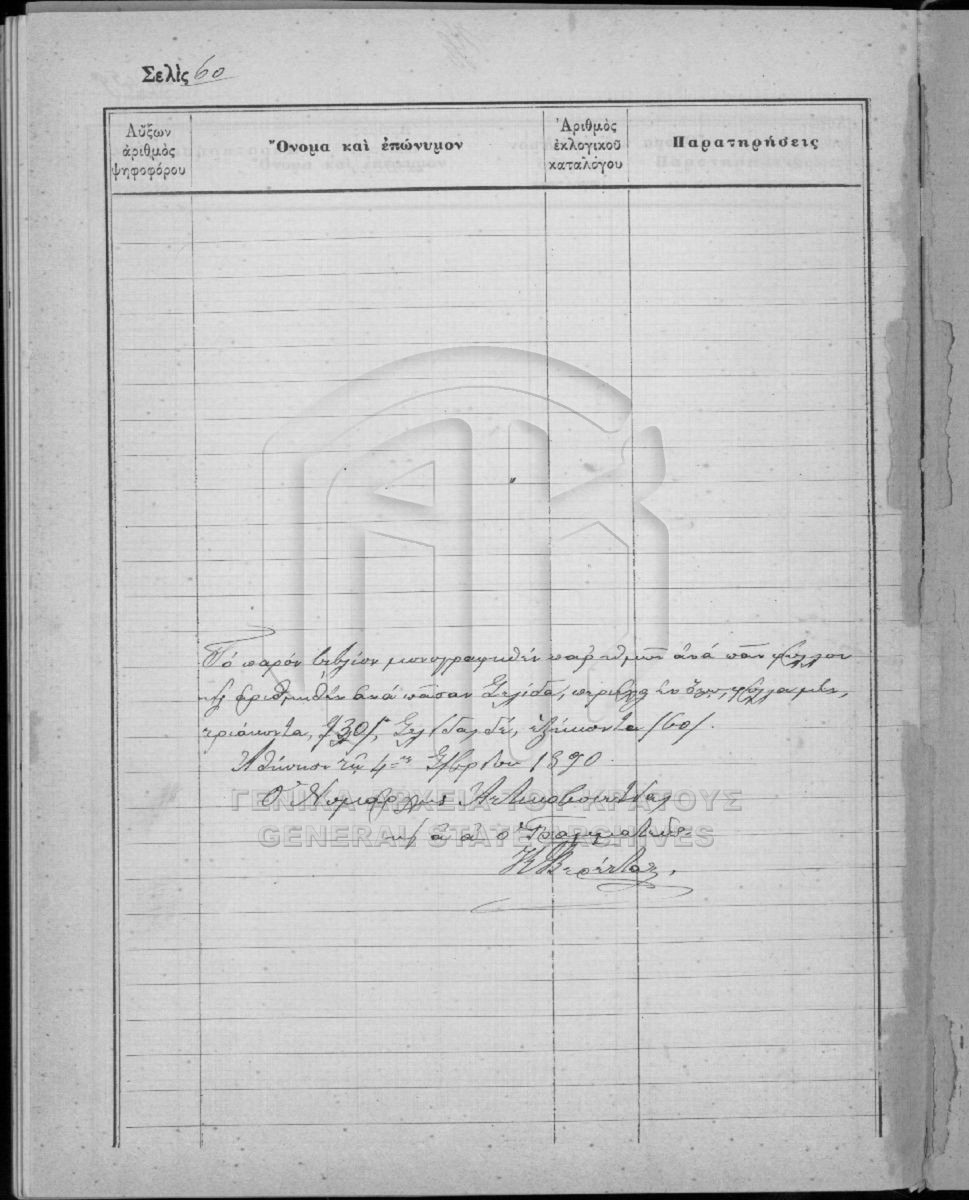 Σελὶς 60
Αὔξων ἀριθμὸς ψηφοφόρου
Ὄνομα καὶ ἐπώνυμον
Ἀριθμὸς ἐκλογικοῦ καταλόγου
Παρατηρήσεις
Τό παρόν βιβλίον μονογραφηθέν παρ' ἡμῶν ἀνά πᾶν φύλλον
ἀριθμηθέν ἀνά πᾶσαν σελίδα, περιέχει ἐν ὅλῳ, φύλλα μέν,
τριάκοντα, /30/, σελίδας δέ, ἑξήκοντα /60/.
Ἀθήνησι τῇ 4ῃ 1890.
Ὁ Νομάρχης Ἀττικοβοιωτίας
κ/ ἀ ἀ ὁ Γραμματεύς
ΓΕΝΙΚΑ ΑΡΧΕΙΑ ΤΟΥ ΚΡΑΤΟΥΣ
GENERAL STATE ARCHIVES